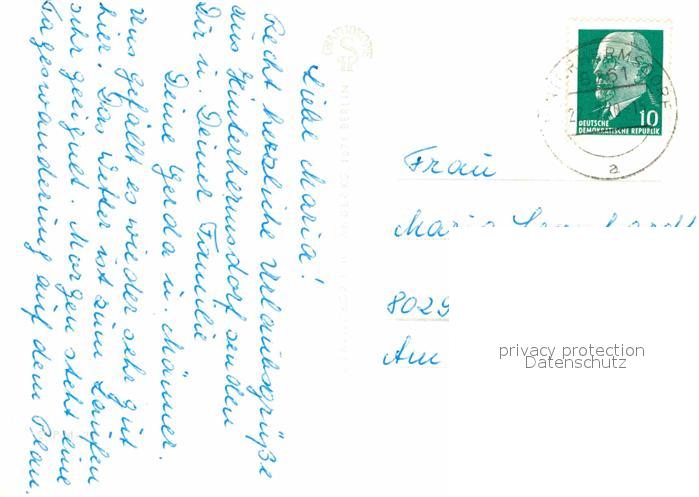 Liebe Maria!
Recht herzliche Urlaubsgrüße
aus Hinterhermsdorf senden
Dir u. Deiner Familie
Deine Gerda u. Männer.
Uns gefällt es wieder sehr gut
hier. Das Wetter ist zum Laufen
sehr geeignet. Morgen steht eine
Tageswanderung auf dem Plan.
BERLIN
DEUTSCHE
DEMOKRATISCHE REPUBLIK
10
a
Frau
8029
Am
privacy protection
Datenschutz